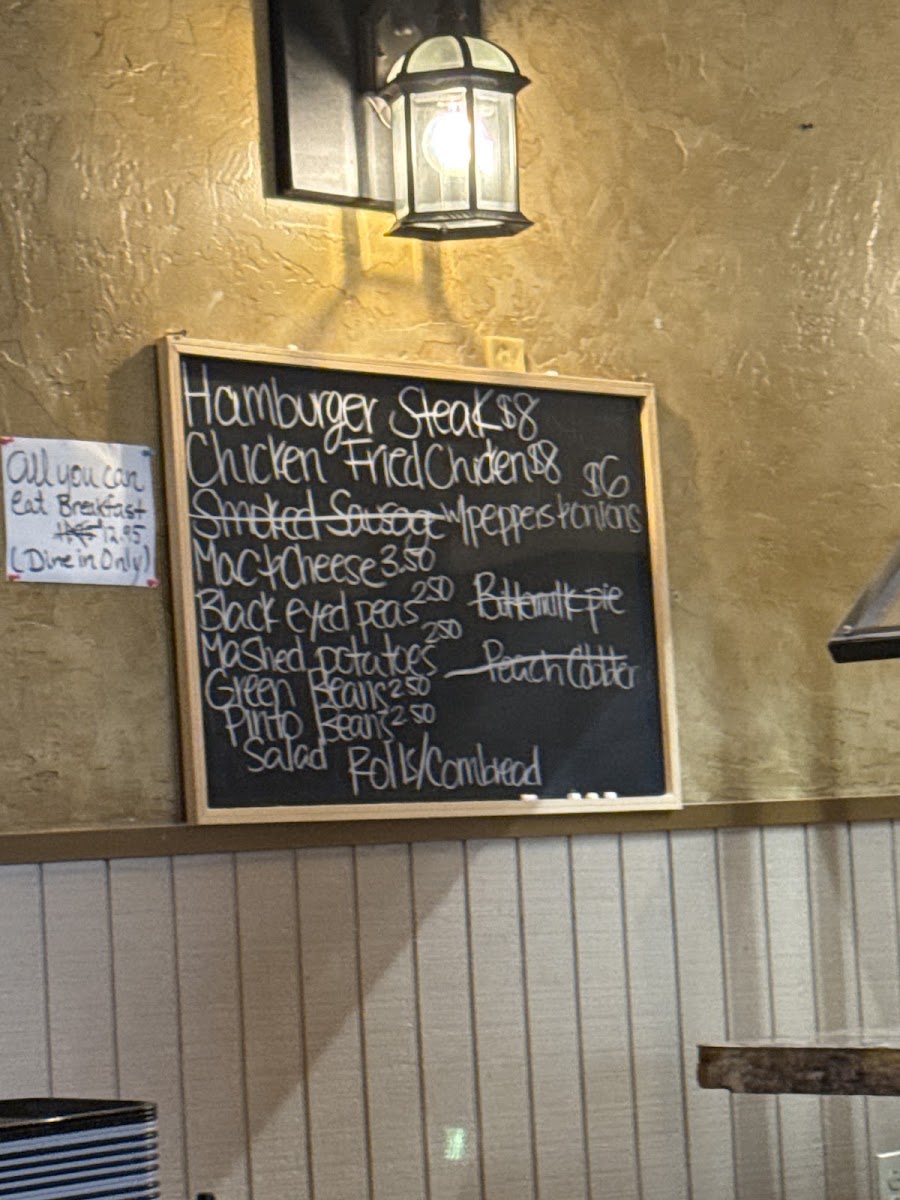 Hamburger Steak $8
Chicken Fried Chicken $8
$6
Smoked Sausage w/peppers + onions
Mac & Cheese 3.50
Black eyed peas 2.50
Buttermilk pie
Mashed potatoes 2.50
Peach Cobbler
Green Beans 2.50
Pinto Beans 2.50
Salad
Rolls/Cornbread
All you can
Eat Breakfast
12.95
(Dine in Only)